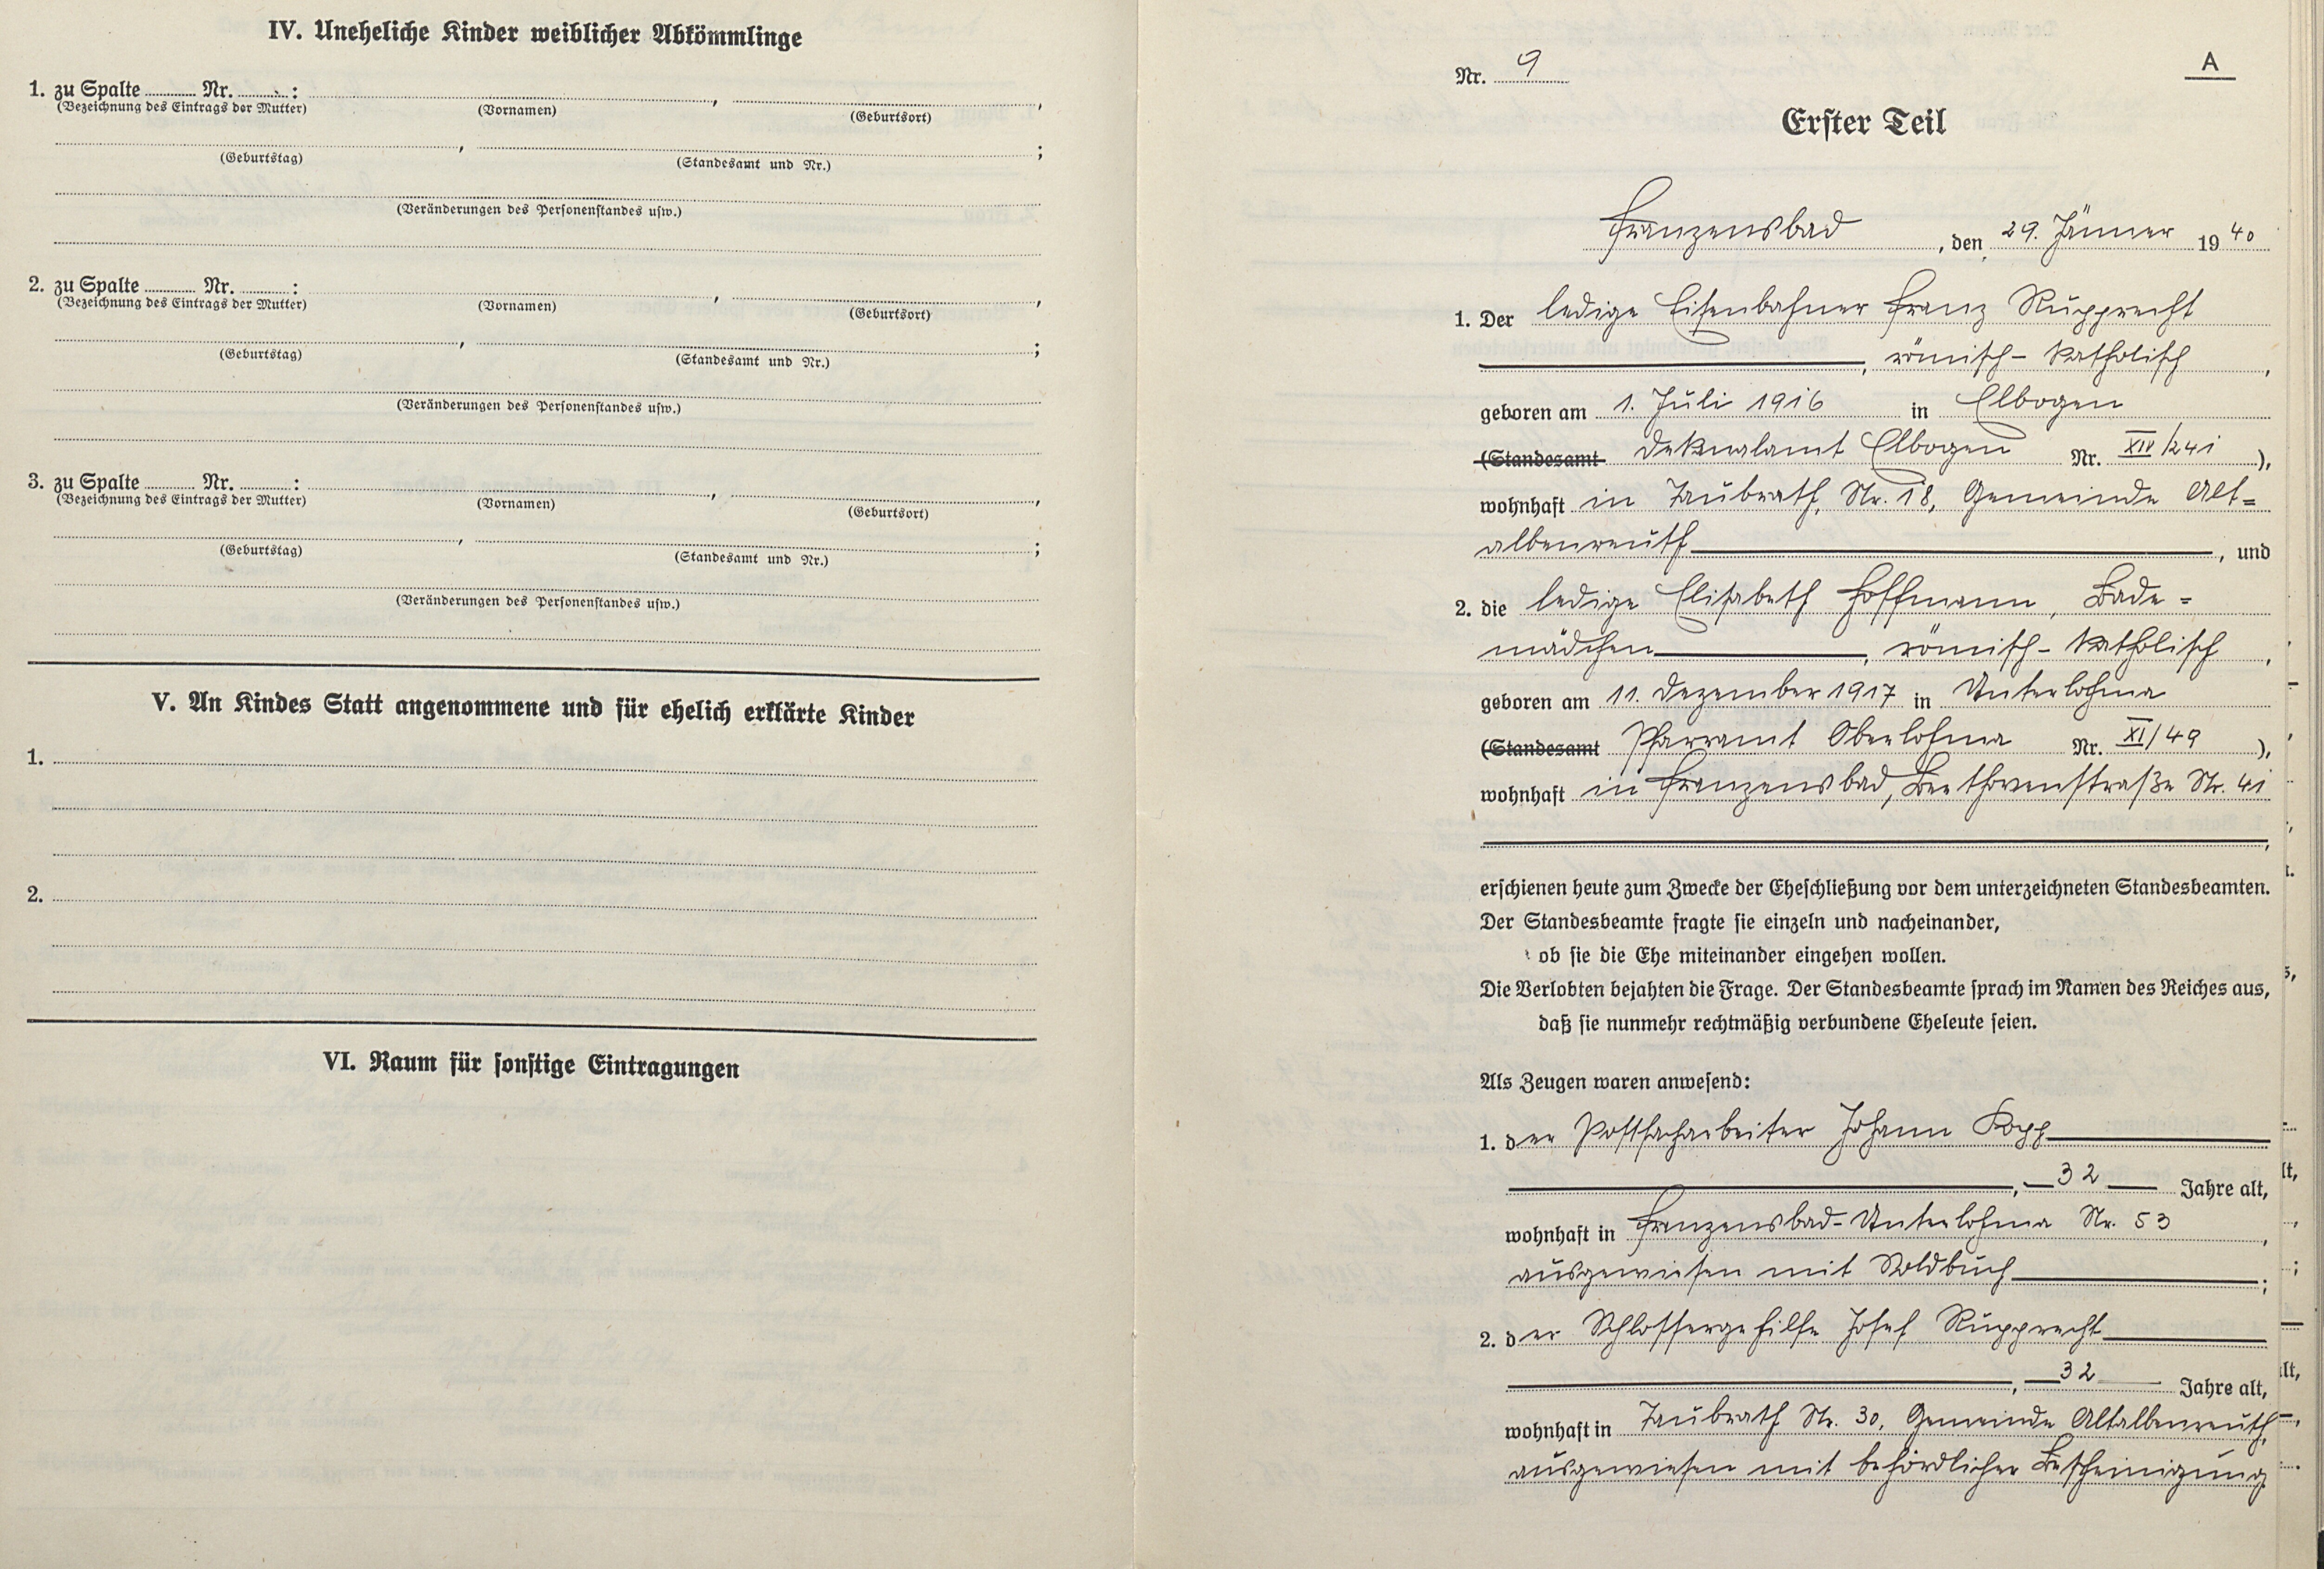 IV. Uneheliche Kinder weiblicher Abkömmlinge
1. zu Spalte ........ Nr. ........ : ........, ........,
(Bezeichnung des Eintrags der Mutter) (Vornamen) (Geburtsort)
........, ........;
(Geburtstag) (Standesamt und Nr.)
(Veränderungen des Personenstandes usw.)
2. zu Spalte ........ Nr. ........ : ........, ........,
(Bezeichnung des Eintrags der Mutter) (Vornamen) (Geburtsort)
........, ........;
(Geburtstag) (Standesamt und Nr.)
(Veränderungen des Personenstandes usw.)
3. zu Spalte ........ Nr. ........ : ........, ........,
(Bezeichnung des Eintrags der Mutter) (Vornamen) (Geburtsort)
........, ........;
(Geburtstag) (Standesamt und Nr.)
(Veränderungen des Personenstandes usw.)
V. An Kindes Statt angenommene und für ehelich erklärte Kinder
1.
2.
VI. Raum für sonstige Eintragungen
A
Nr. 9
Erster Teil
Franzensbad, den 29. Jänner 1940
1. Der ledige Eisenbahner Franz Rupprecht
, römisch-katholisch,
geboren am 1. Juli 1916 in Elbogen
(Standesamt Dekanalamt Elbogen Nr. XIV/241),
wohnhaft in Taubrath, Nr. 18, Gemeinde Alt=
albenreuth, und
2. die ledige Elisabeth Hoffmann, Bade=
mädchen, römisch-katholisch,
geboren am 11. Dezember 1917 in Unterlohma
(Standesamt Pfarramt Oberlohma Nr. XI/49),
wohnhaft in Franzensbad, Beethovenstraße Nr. 41
,
erschienen heute zum Zwecke der Eheschließung vor dem unterzeichneten Standesbeamten.
Der Standesbeamte fragte sie einzeln und nacheinander,
ob sie die Ehe miteinander eingehen wollen.
Die Verlobten bejahten die Frage. Der Standesbeamte sprach im Namen des Reiches aus,
daß sie nunmehr rechtmäßig verbundene Eheleute seien.
Als Zeugen waren anwesend:
1. der Postfacharbeiter Johann Kopp
, 32 Jahre alt,
wohnhaft in Franzensbad-Unterlohma Nr. 53,
ausgewiesen mit Soldbuch;
2. der Schlossergehilfe Josef Rupprecht
, 32 Jahre alt,
wohnhaft in Taubrath Nr. 30, Gemeinde Altalbenreuth,
ausgewiesen mit behördlicher Bescheinigung.